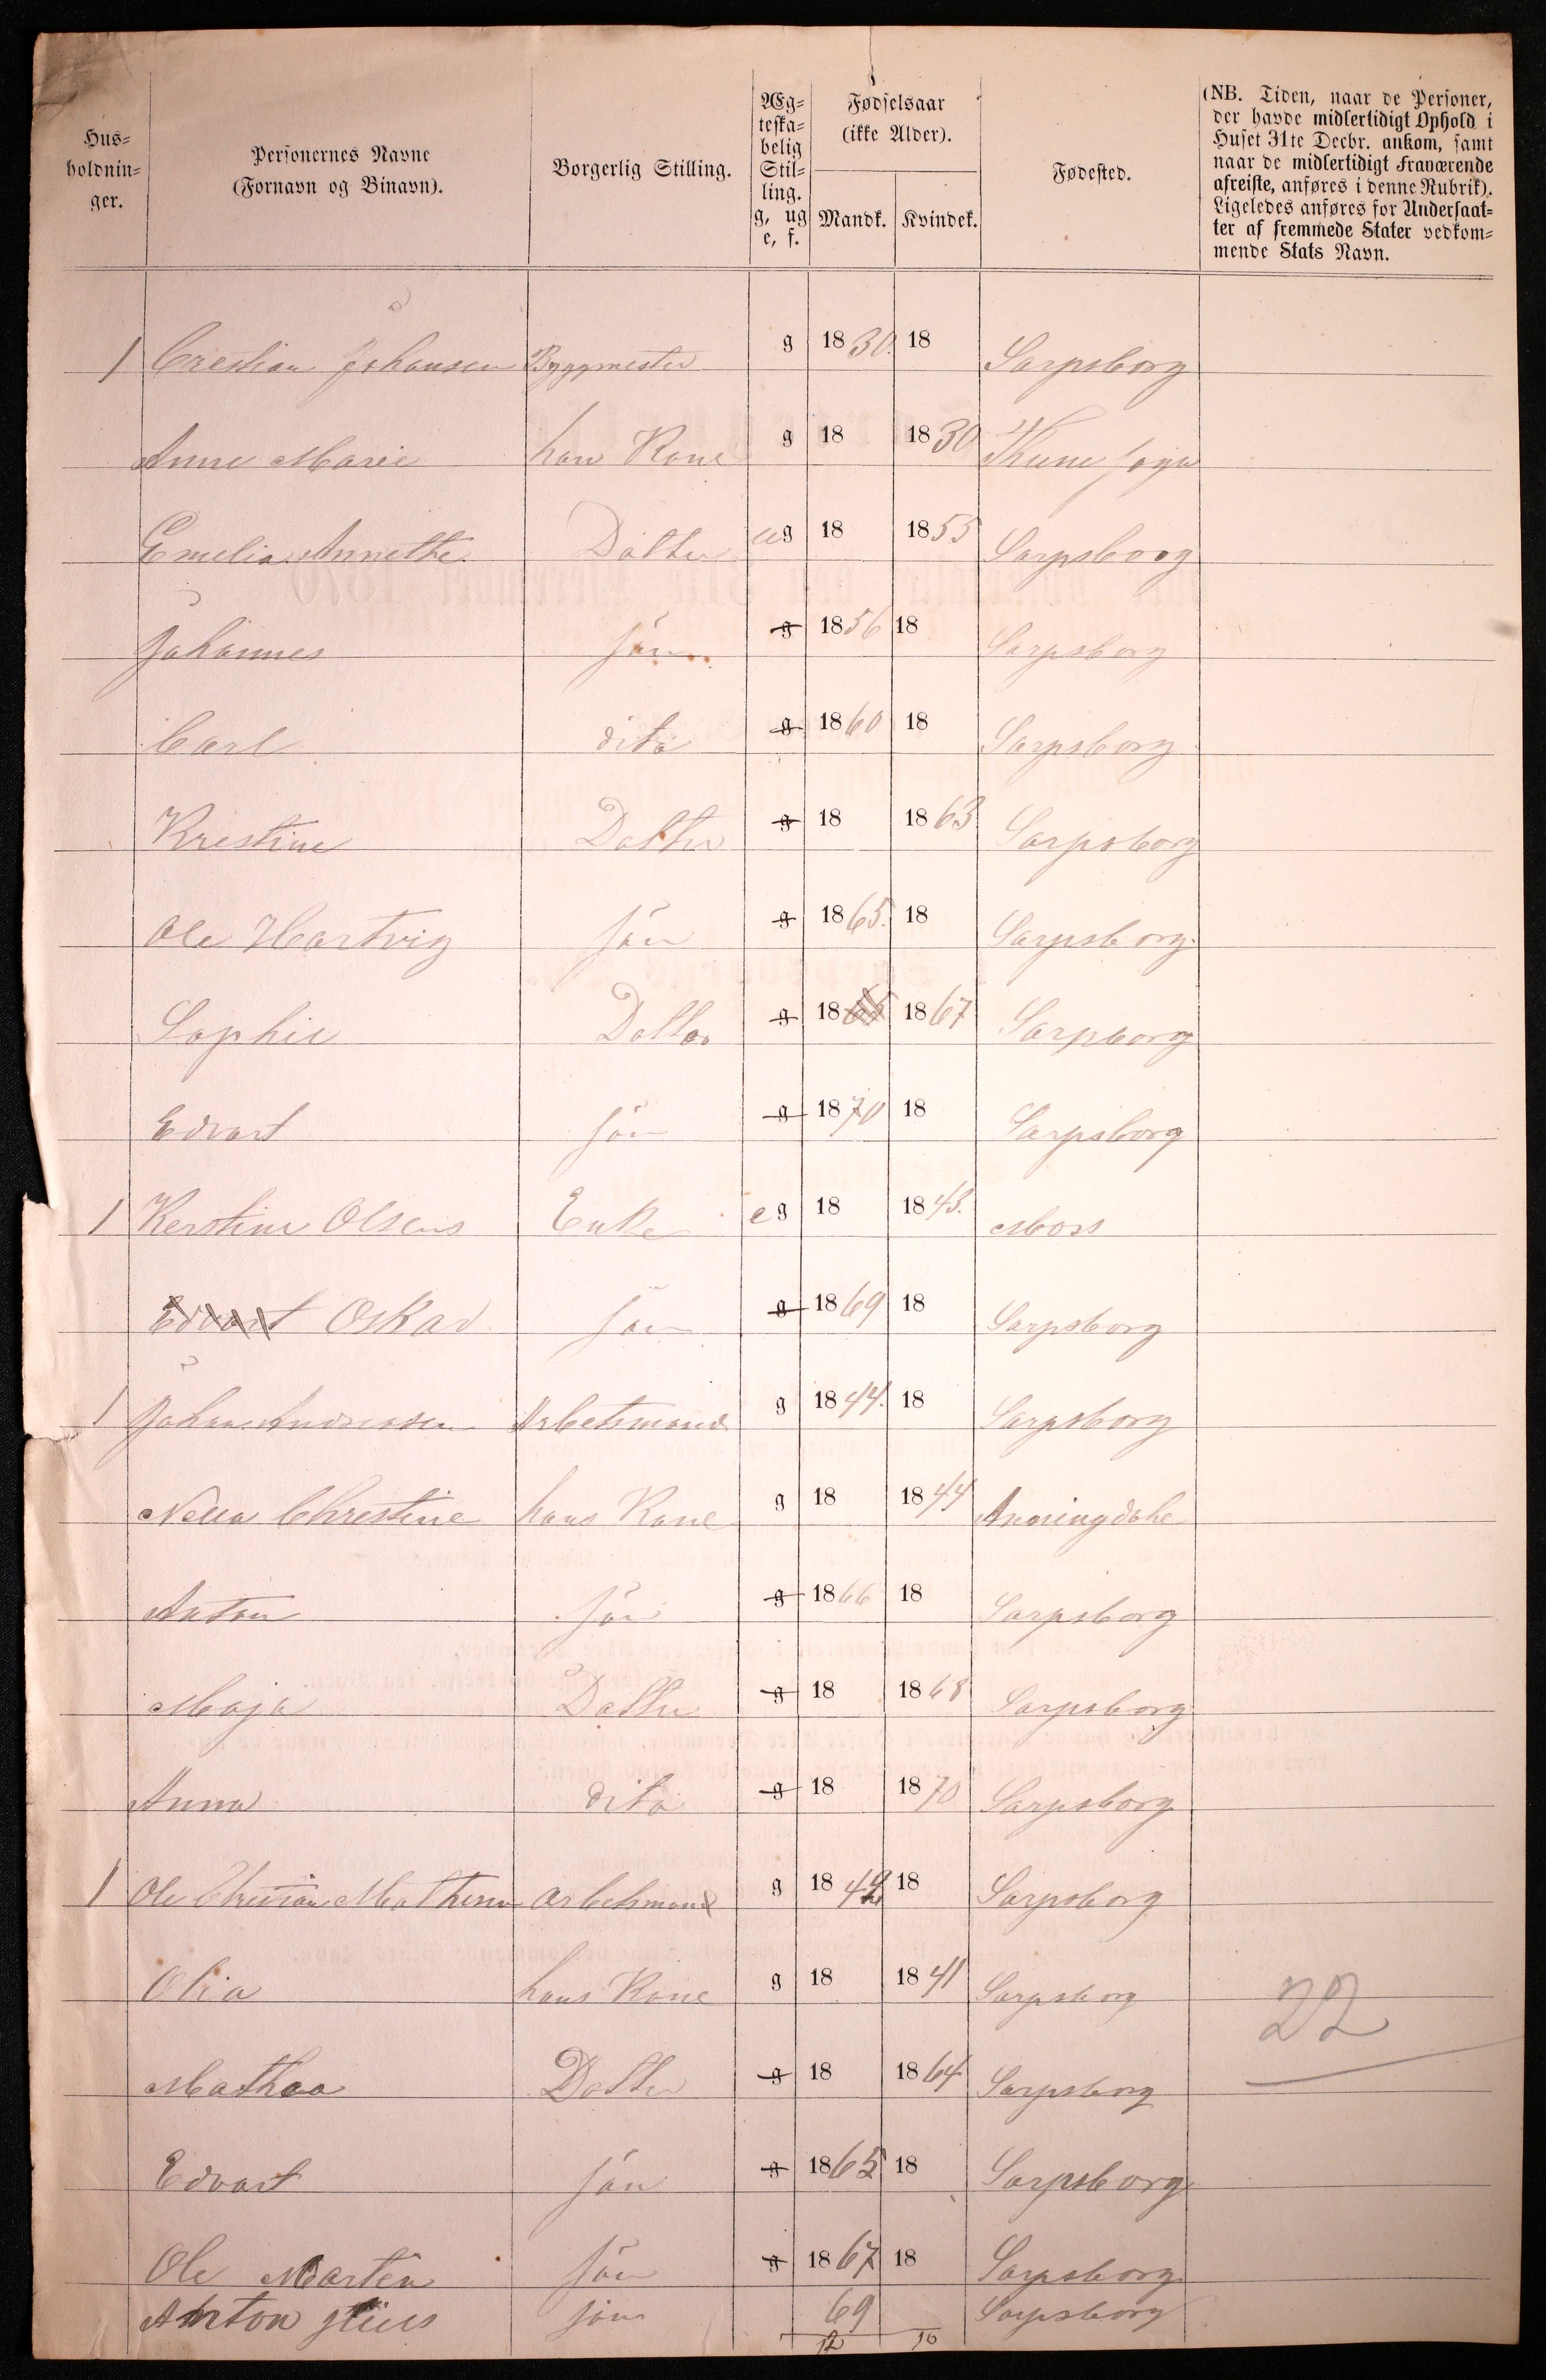 Hus-holdnin-ger. Personernes Navne (Fornavn og Binavn). Borgerlig Stilling. Æg-teska-belig Stil-ling. g, ug e, f. Fødselsaar (ikke Alder). Mandk. Kvindek. Fødested. (NB. Tiden, naar de Personer, der havde midlertidigt Ophold i Huset 31te Decbr. ankom, samt naar de midlertidigt Fraværende afreiste, anføres i denne Rubrik). Ligeledes anføres for Undersaat-ter af fremmede Stater vedkom-mende Stats Navn.
1 Crestian Johansen Byggmester g 1830. 18 Sarpsborg
Anne Marie hans Kone g 18 1830 Thune Sogn
Emelia Annethe Datter ug 18 1855 Sarpsborg
Johannes Sön g 1856 18 Sarpsborg
Carl dito g 1860 18 Sarpsborg
Krestine Datter g 18 1863 Sarpsborg
Ole Hartvig Sön g 1865. 18 Sarpsborg.
Sophie Datter g 1865 1867 Sarpborg
Edvart Sön g 1870 18 Sarpsborg
1 Kerstine Olsens Enke eg 18 1843. Moss
Edvart Oskar Sön g 1869 18 Sarpsborg
1 Johan Andressen Arbetsmand g 1844. 18 Sarpsborg
Nella Chrestine hans Kone g 18 1844
Anton Sön g 1866 18 Sarpsborg
Maja Datter g 18 1868 Sarpsborg
Anna dito g 18 1870 Sarpsborg
1 Ole Christian Mathesen Arbetsmand g 1842 18 Sarpsborg
Olia hans Kone g 18 1841 Sarpsborg
Mathea Datter g 18 1864 Sarpsborg
22
Edvart Sön g 1865 18 Sarpsborg
Ole Marten Sön g 1867 18 Sarpsborg
Anton Sön 69 Sarpsborg
12 10